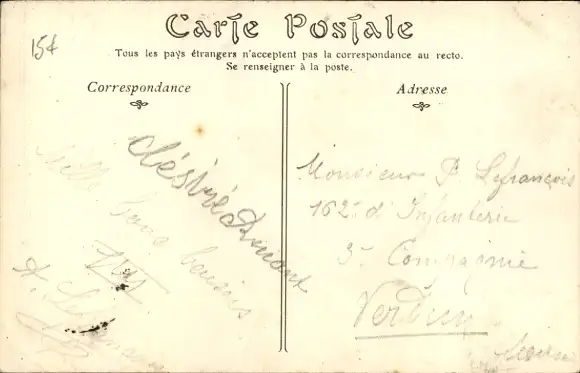 15¢
Carte Postale
Tous les pays étrangers n'acceptent pas la correspondance au recto.
Se renseigner à la poste.
Correspondance
Adresse
Mille bons baisers
désiré
Monsieur P. Lefrançois
162e d'Infanterie
3e Compagnie
Verdun